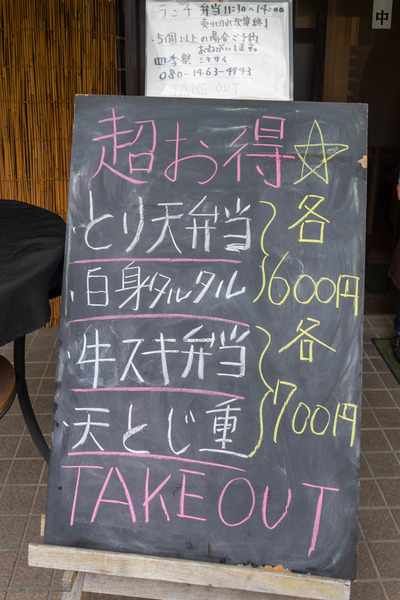 ランチ 弁当 11:30〜14:00
売り切れ次第終了
・5個以上の場合ご予約
おねがいします。
四季祭 ミキサイ
080-1463-4943
TAKE OUT
中
超お得☆
・とり天弁当
・白身タルタル
各
600円
・牛スキ弁当
・天とじ重
各
700円
TAKEOUT